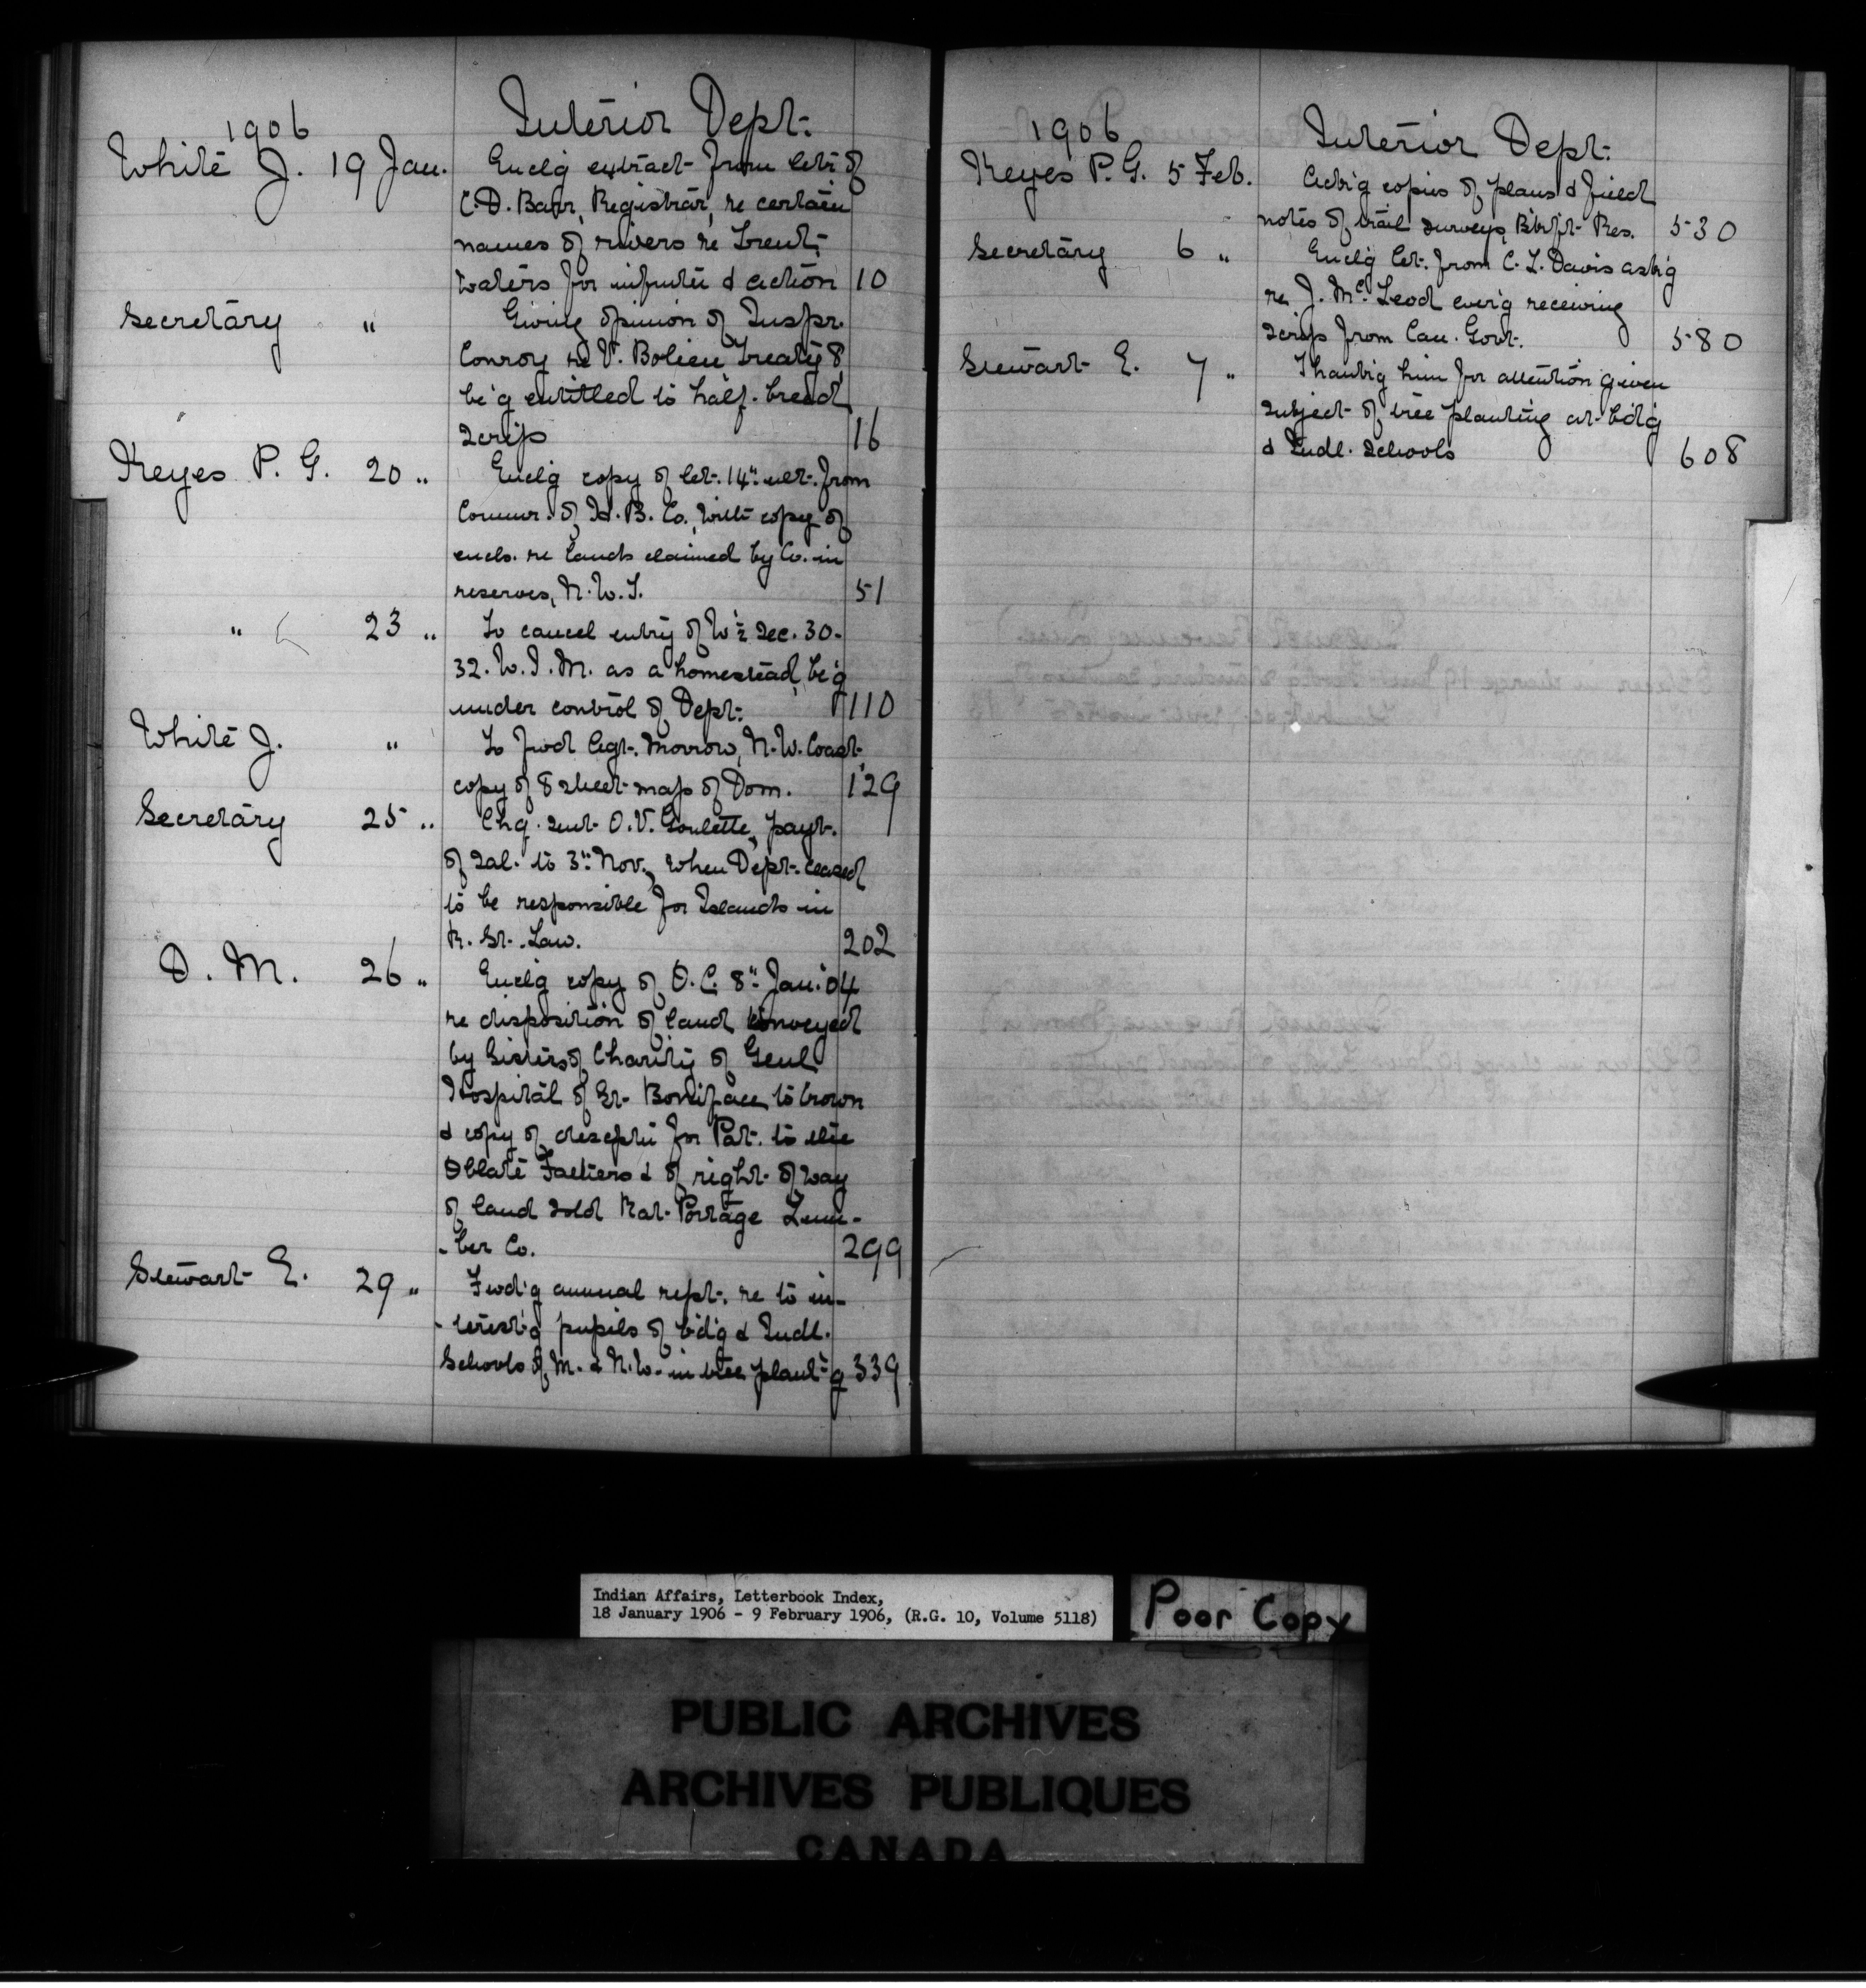 1906 Interior Dept.
White J. 19 Jan. Enclg extract from letr of
C.D. Barr, Registrar, re certain
names of rivers re Trent
waters for infmtn & action 10
Secretary " Giving opinion of Inspr.
Conroy re V. Bolieu Treaty 8
be'g entitled to half-breed
scrip 16
Keyes P. G. 20 " Enclg copy of let. 14" ult. from
Commr. of H. B. Co. with copy of
encls. re lands claimed by Co. in
reserves, N.W.T. 51
" 23 " To cancel entry of W ½ Sec. 30-
32. W.I.M. as a homestead, be'g
under control of Dept. 110
White J. " To fwd Agt. Morrow, N.W. Coast,
copy of 8 sheet map of Dom. 129
Secretary 25 " Chq. sent O.V. Goulette, payt.
of sal. to 3" Nov., when Dept. ceased
to be responsible for Islands in
R. St. Law. 202
D. M. 26 " Enclg copy of O.C. 8" Jan. '04
re disposition of land conveyed
by Sisters of Charity of Genl
Hospital of St. Boniface to Crown
& copy of descptn for Pat. to the
Oblate Fathers & of right of way
of land sold Rat Portage Lum-
-ber Co. 299
Stewart E. 29 " Fwd'g annual rept. re to in-
-terest'g pupils of bd'g & Indl.
Schools of M. & N.W. in tree plant'g 339
1906 Interior Dept.
Keyes P. G. 5 Feb. Ackg copies of plans & field
notes of trail surveys, Btrft Res. 530
Secretary 6 " Enclg let. from C. L. Davis ask'g
re J. McLeod ever'g receiving
scrip from Can. Govt. 580
Stewart E. 7 " Thank'g him for attention given
subject of tree planting at bd'g
& Indl. Schools 608
Indian Affairs, Letterbook Index,
18 January 1906 - 9 February 1906, (R.G. 10, Volume 5118)
Poor Copy
PUBLIC ARCHIVES
ARCHIVES PUBLIQUES
CANADA